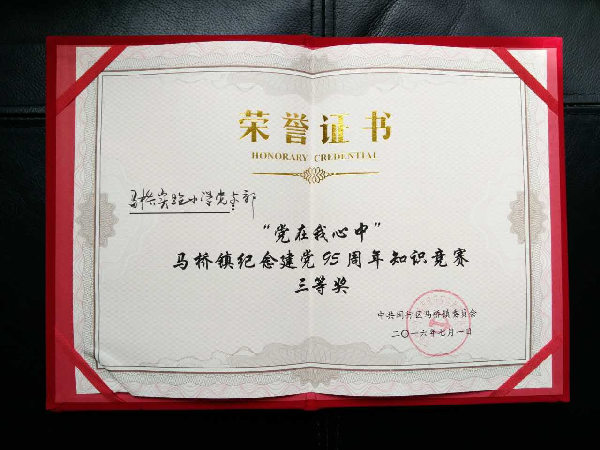 荣誉证书
HONORARY CREDENTIAL
马桥实验小学党支部
“党在我心中”
马桥镇纪念建党95周年知识竞赛
三等奖
中共闵行区马桥镇委员会
二〇一六年七月一日